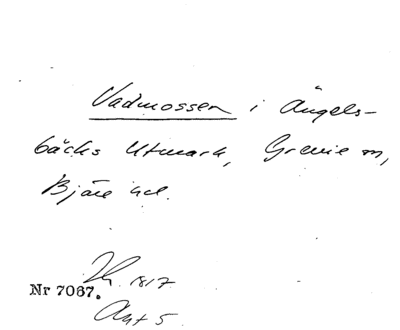 Vadmossen i Ängels-
bäcks Utmark, Grevie sn,
Bjäre hd.
1817
Nr 7067.
Akt 5